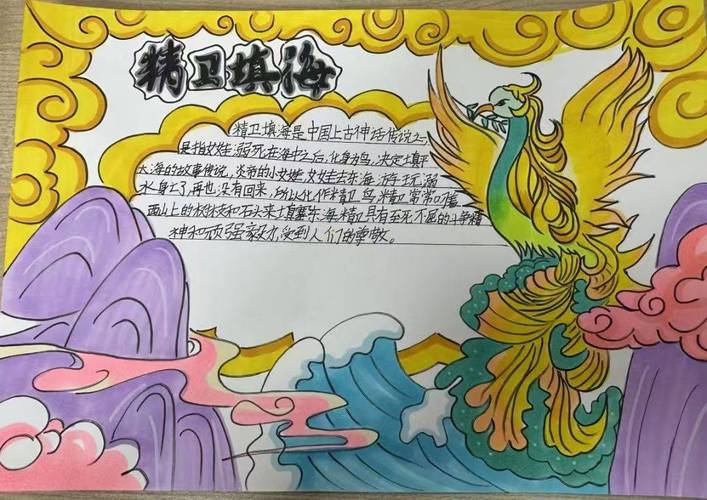 精卫填海
精卫填海是中国上古神话传说之一,
是指女娃溺死在海中之后,化身为鸟,决定填平
大海的故事传说,炎帝的小女儿女娃去东海游玩溺
水身亡了,再也没有回来,所以化作精卫鸟精卫常常口衔
西山上的树枝和石头来填塞东海精卫具有至死不屈的斗争精
神和顽强毅力受到人们的尊敬。